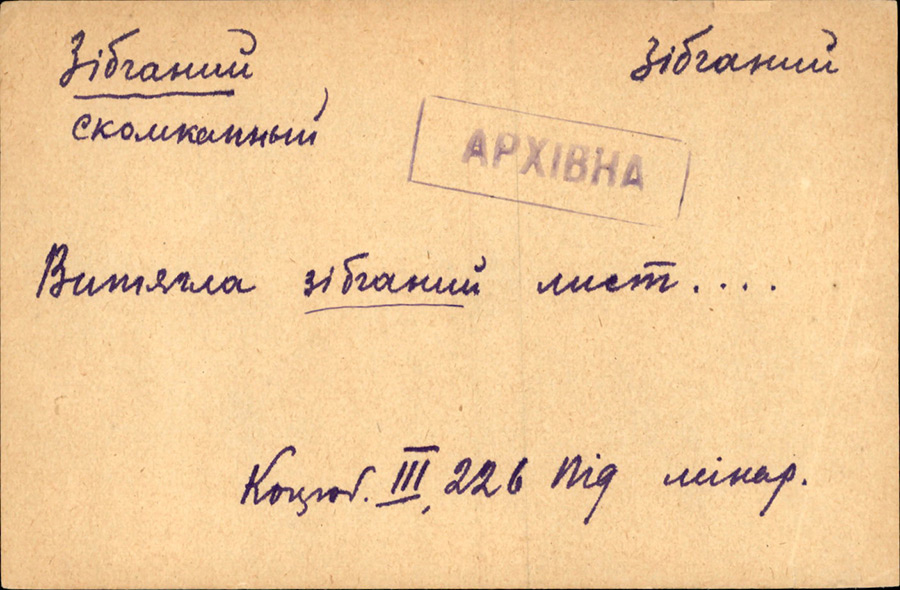 Зібганий Зібганий
скомканный
АРХІВНА
Витягла зібганий лист....
Коцюб. III, 226 Під мінар.